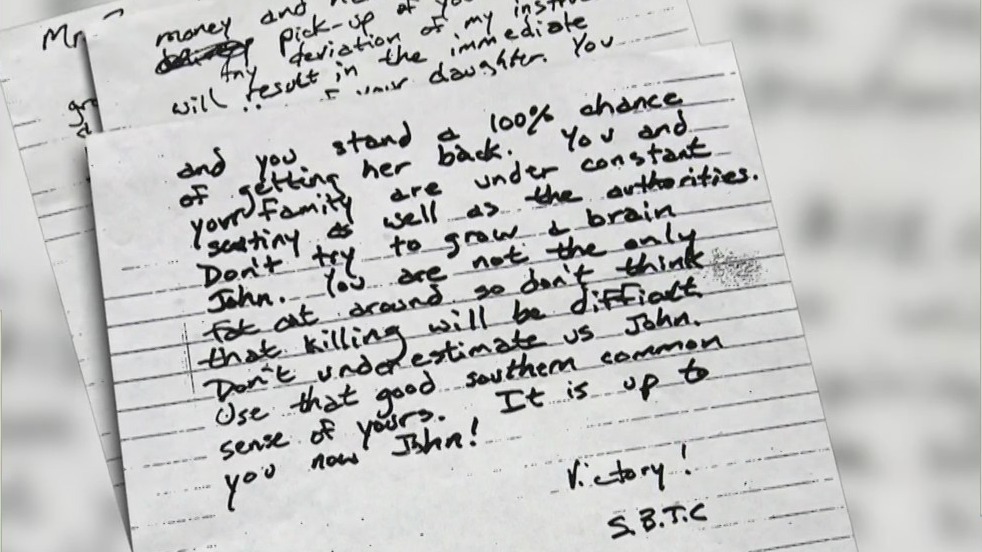 Mr
money and
pick-up of
Any deviation of my instru
will result in the immediate
your daughter. You
and you stand a 100% chance
of getting her back. You and
your family are under constant
scutiny as well as the authorities.
Don't try to grow a brain
John. You are not the only
fat cat around so don't think
that killing will be difficult
Don't underestimate us John.
Use that good southern common
sense of yours. It is up to
you now John!
Victory!
S.B.T.C